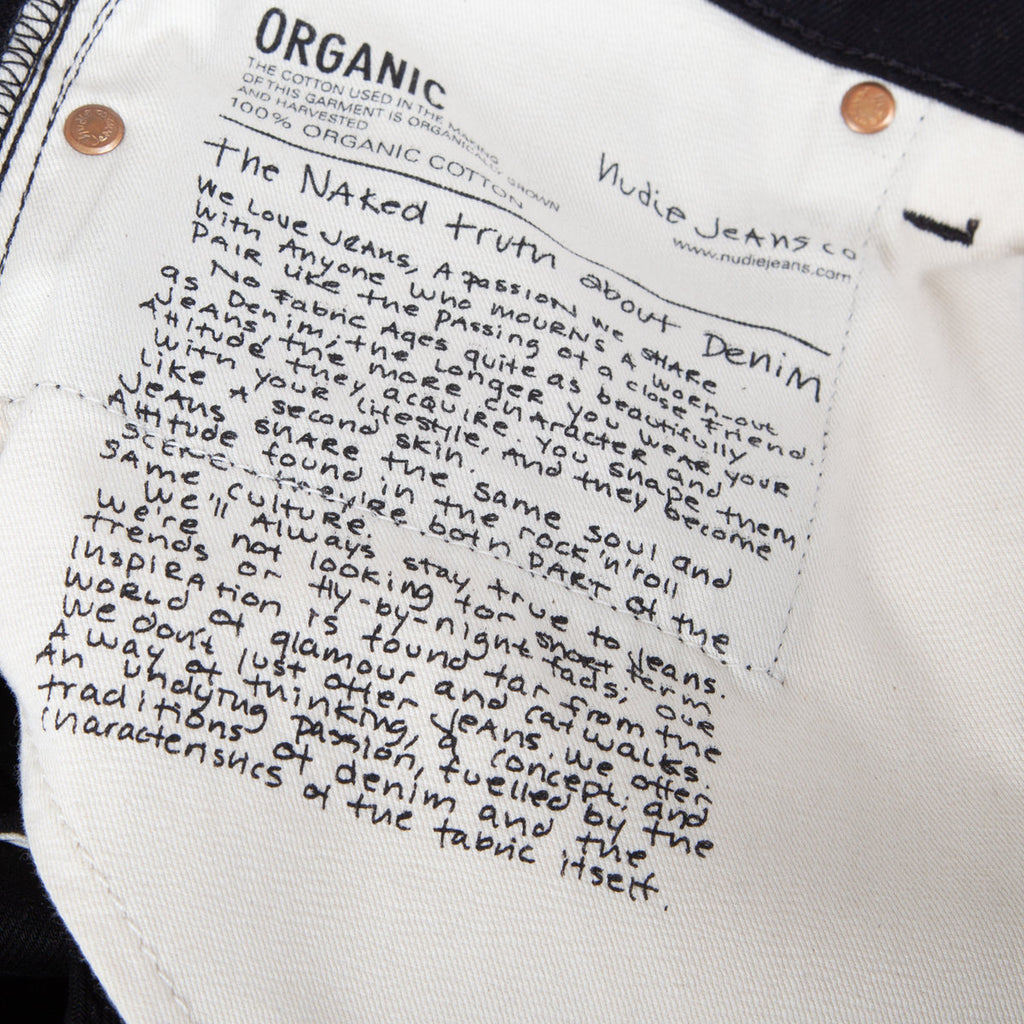 ORGANIC
THE COTTON USED IN THE MAKING
OF THIS GARMENT IS ORGANICALLY GROWN
AND HARVESTED
100% ORGANIC COTTON
Nudie JeANS co
www.nudiejeans.com
the NAked truth about DeniM
We Love JeANS, A pASSiON we SHARe
With ANyone who mouRNS A worn-out
PAiR Like the PASSing of a close friend.
No FAbRic Ages quite as beautifully
as Denim; the Longer you weAR your
JeANS, the more cHARActer and
Attitude they acquire. You shape them
with your lifestyle, And they become
Like A second skin.
JeANS SHARe the same soul and
Attitude found in the rock'n'roll
scene. they're both PART of the
SAme culture.
We'll AlwAys stay true to jeans.
We're not looking for short term
trends or fly-by-night fads; our
INSPiRAtion is found far from the
world of glamour and catwalks.
We don't just offer jeAns. We offer
A way of thinking, a concept; and
An undying passion, fuelled by the
traditions of denim and the
characteristics of the fabric itself.